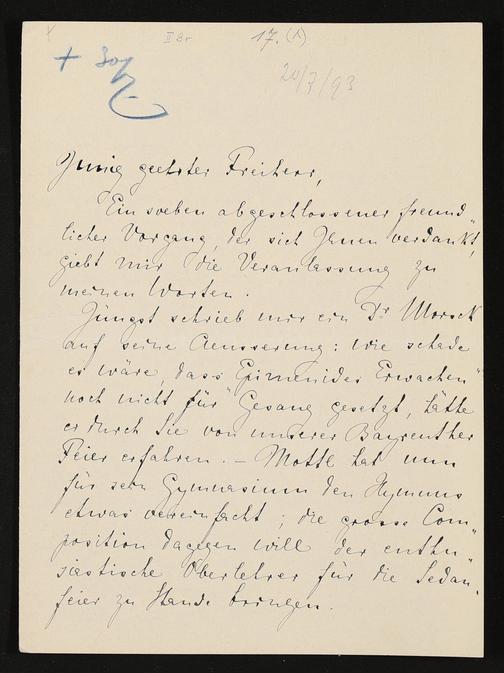 II Br 17. (1)
+ 
20/7/93
Innig geehrter Freiherr,
Ein soeben abgeschlossener freund"
licher Vorgang, der sich Ihnen verdankt,
giebt mir die Veranlassung zu
meinen Worten.
Jüngst schrieb mir ein Dr Morsch
auf seine Aeusserung: wie schade
es wäre, dass Epimenides Erwachen"
noch nicht für Gesang gesetzt, hätte
er durch Sie von unserer Bayreuther
Feier erfahren. – Mottl hat nun
für sein Gymnasium den Hymnus
etwas vereinfacht; die grosse Com"
position dagegen will der enthu"
siastische Oberlehrer für die Sedan"
feier zu Stande bringen.